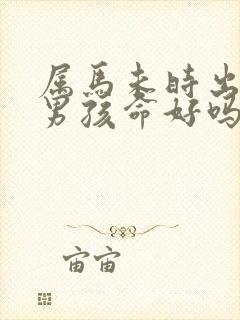 属马未时出
男孩命好吗
宙宙